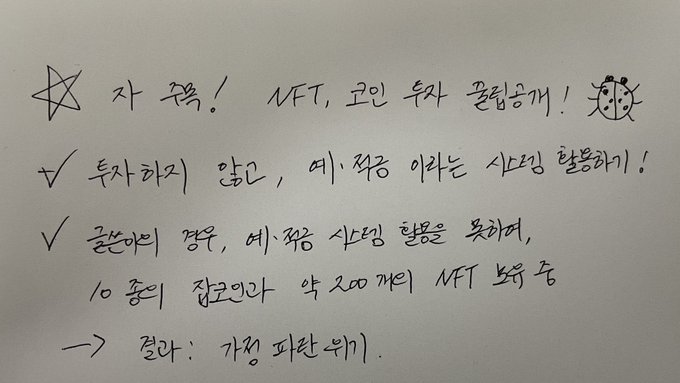 자 주목! NFT, 코인 투자 꿀팁공개!
✓ 투자하지 않고, 예·적금 이라는 시스템 활용하기!
✓ 글쓴이의 경우, 예·적금 시스템 활용을 못하여,
10종의 잡코인과 약 200개의 NFT 보유 중
→ 결과: 가정 파탄 위기.